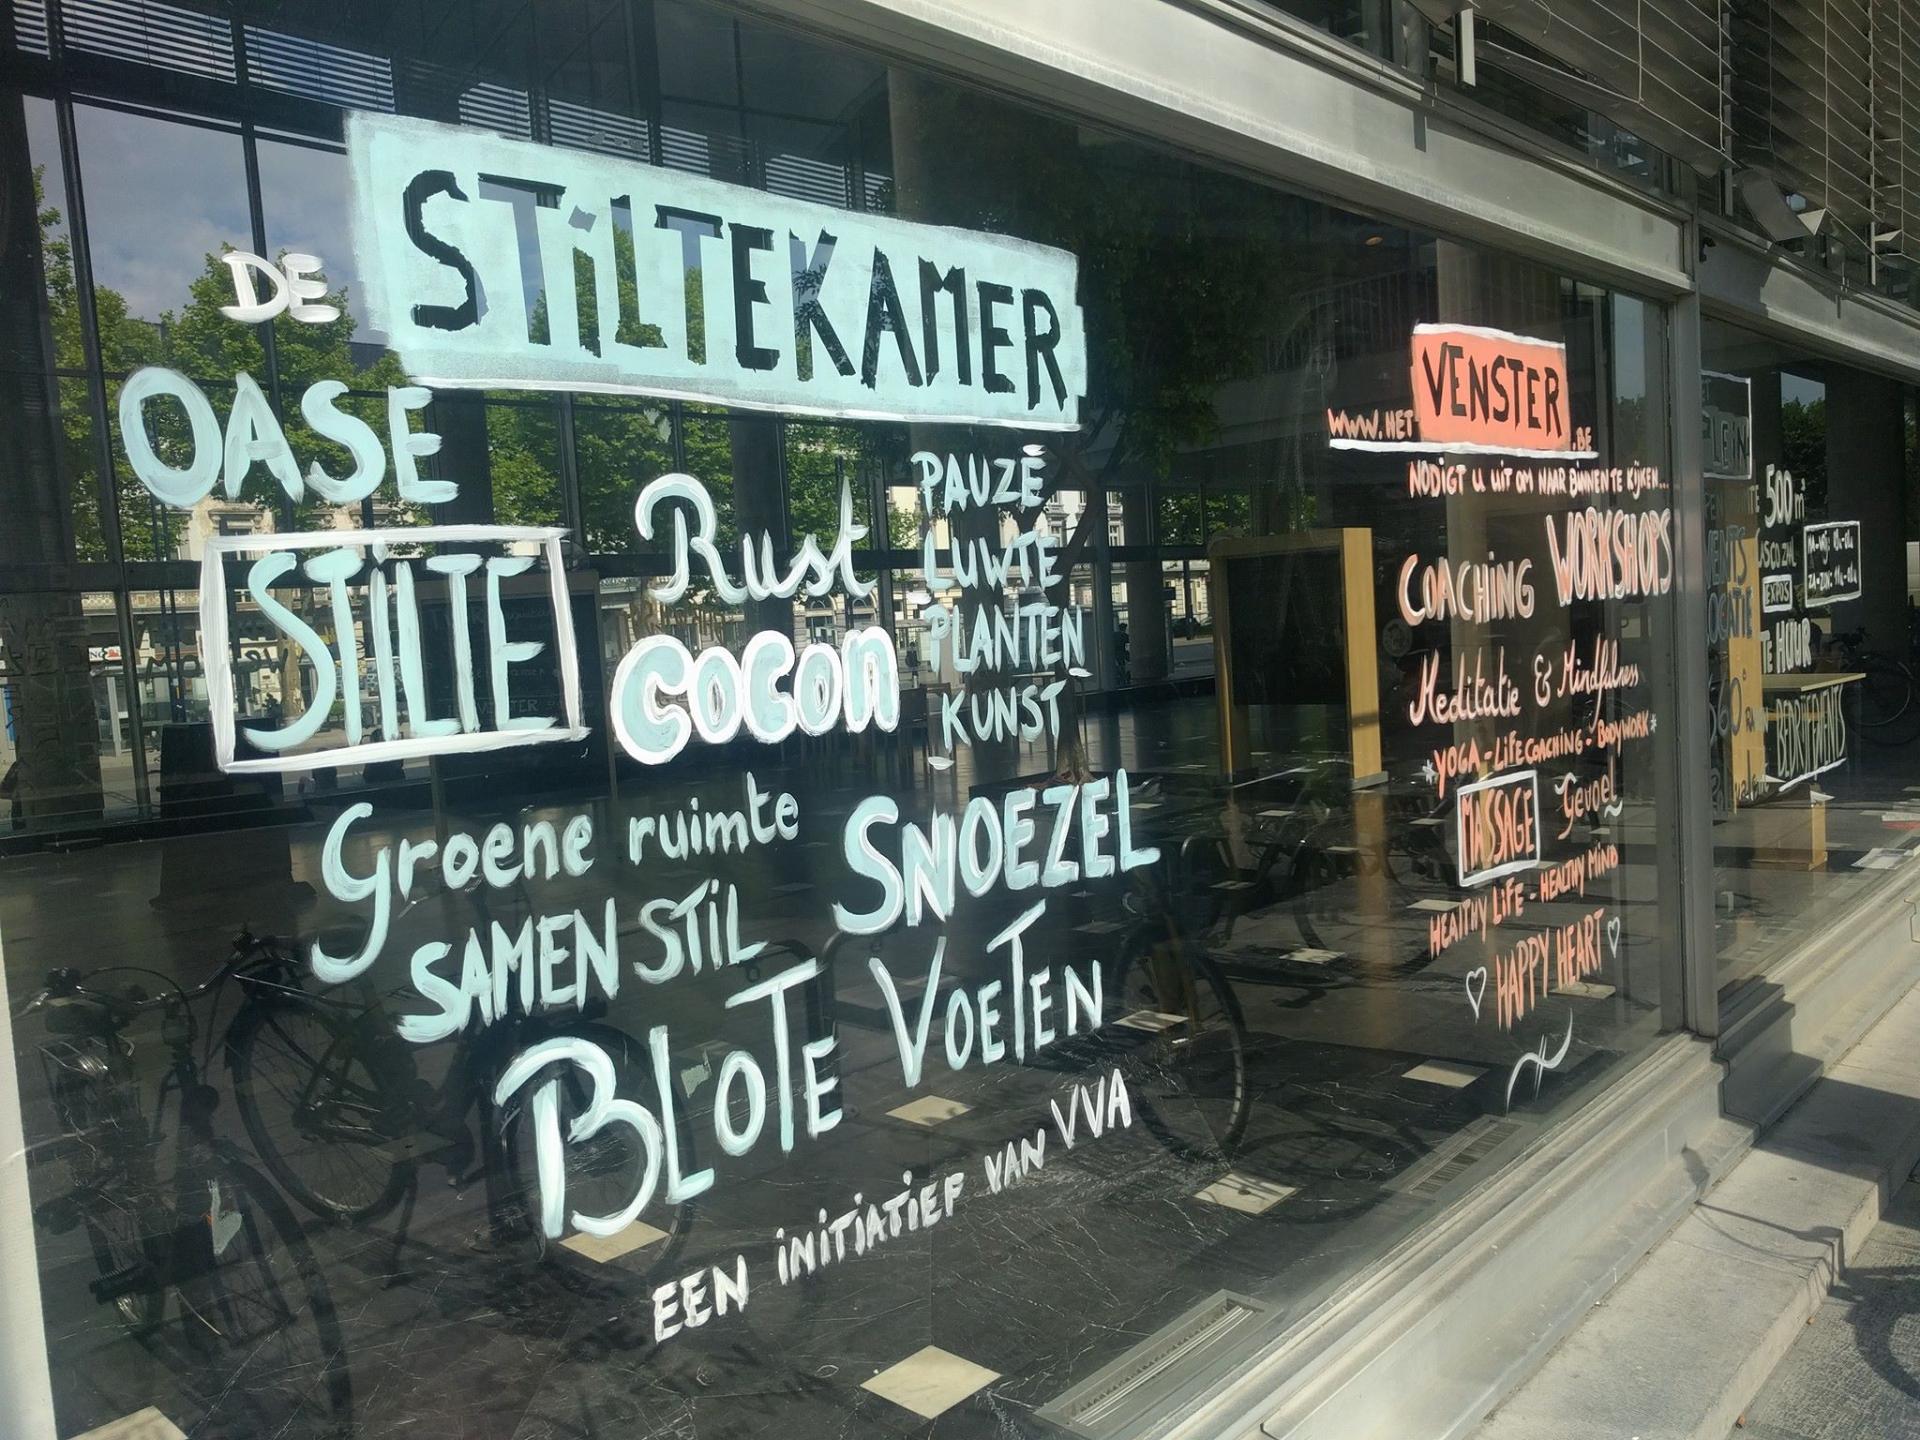 DE STILTEKAMER
OASE
STILTE
Rust
COCON
PAUZE
LUWTE
PLANTEN
- KUNST -
Groene ruimte
SNOEZEL
SAMEN STIL
BLOTE VOETEN
EEN INITIATIEF VAN VVA
WWW.HET VENSTER .BE
NODIGT U UIT OM NAAR BINNEN TE KIJKEN...
COACHING WORKSHOPS
Meditatie & Mindfulness
*YOGA - LIFECOACHING - BODYWORK*
MASSAGE Gevoel
HEALTHY LIFE - HEALTHY MIND
♡ HAPPY HEART ♡
500 m²
EXPOS
TE HUUR